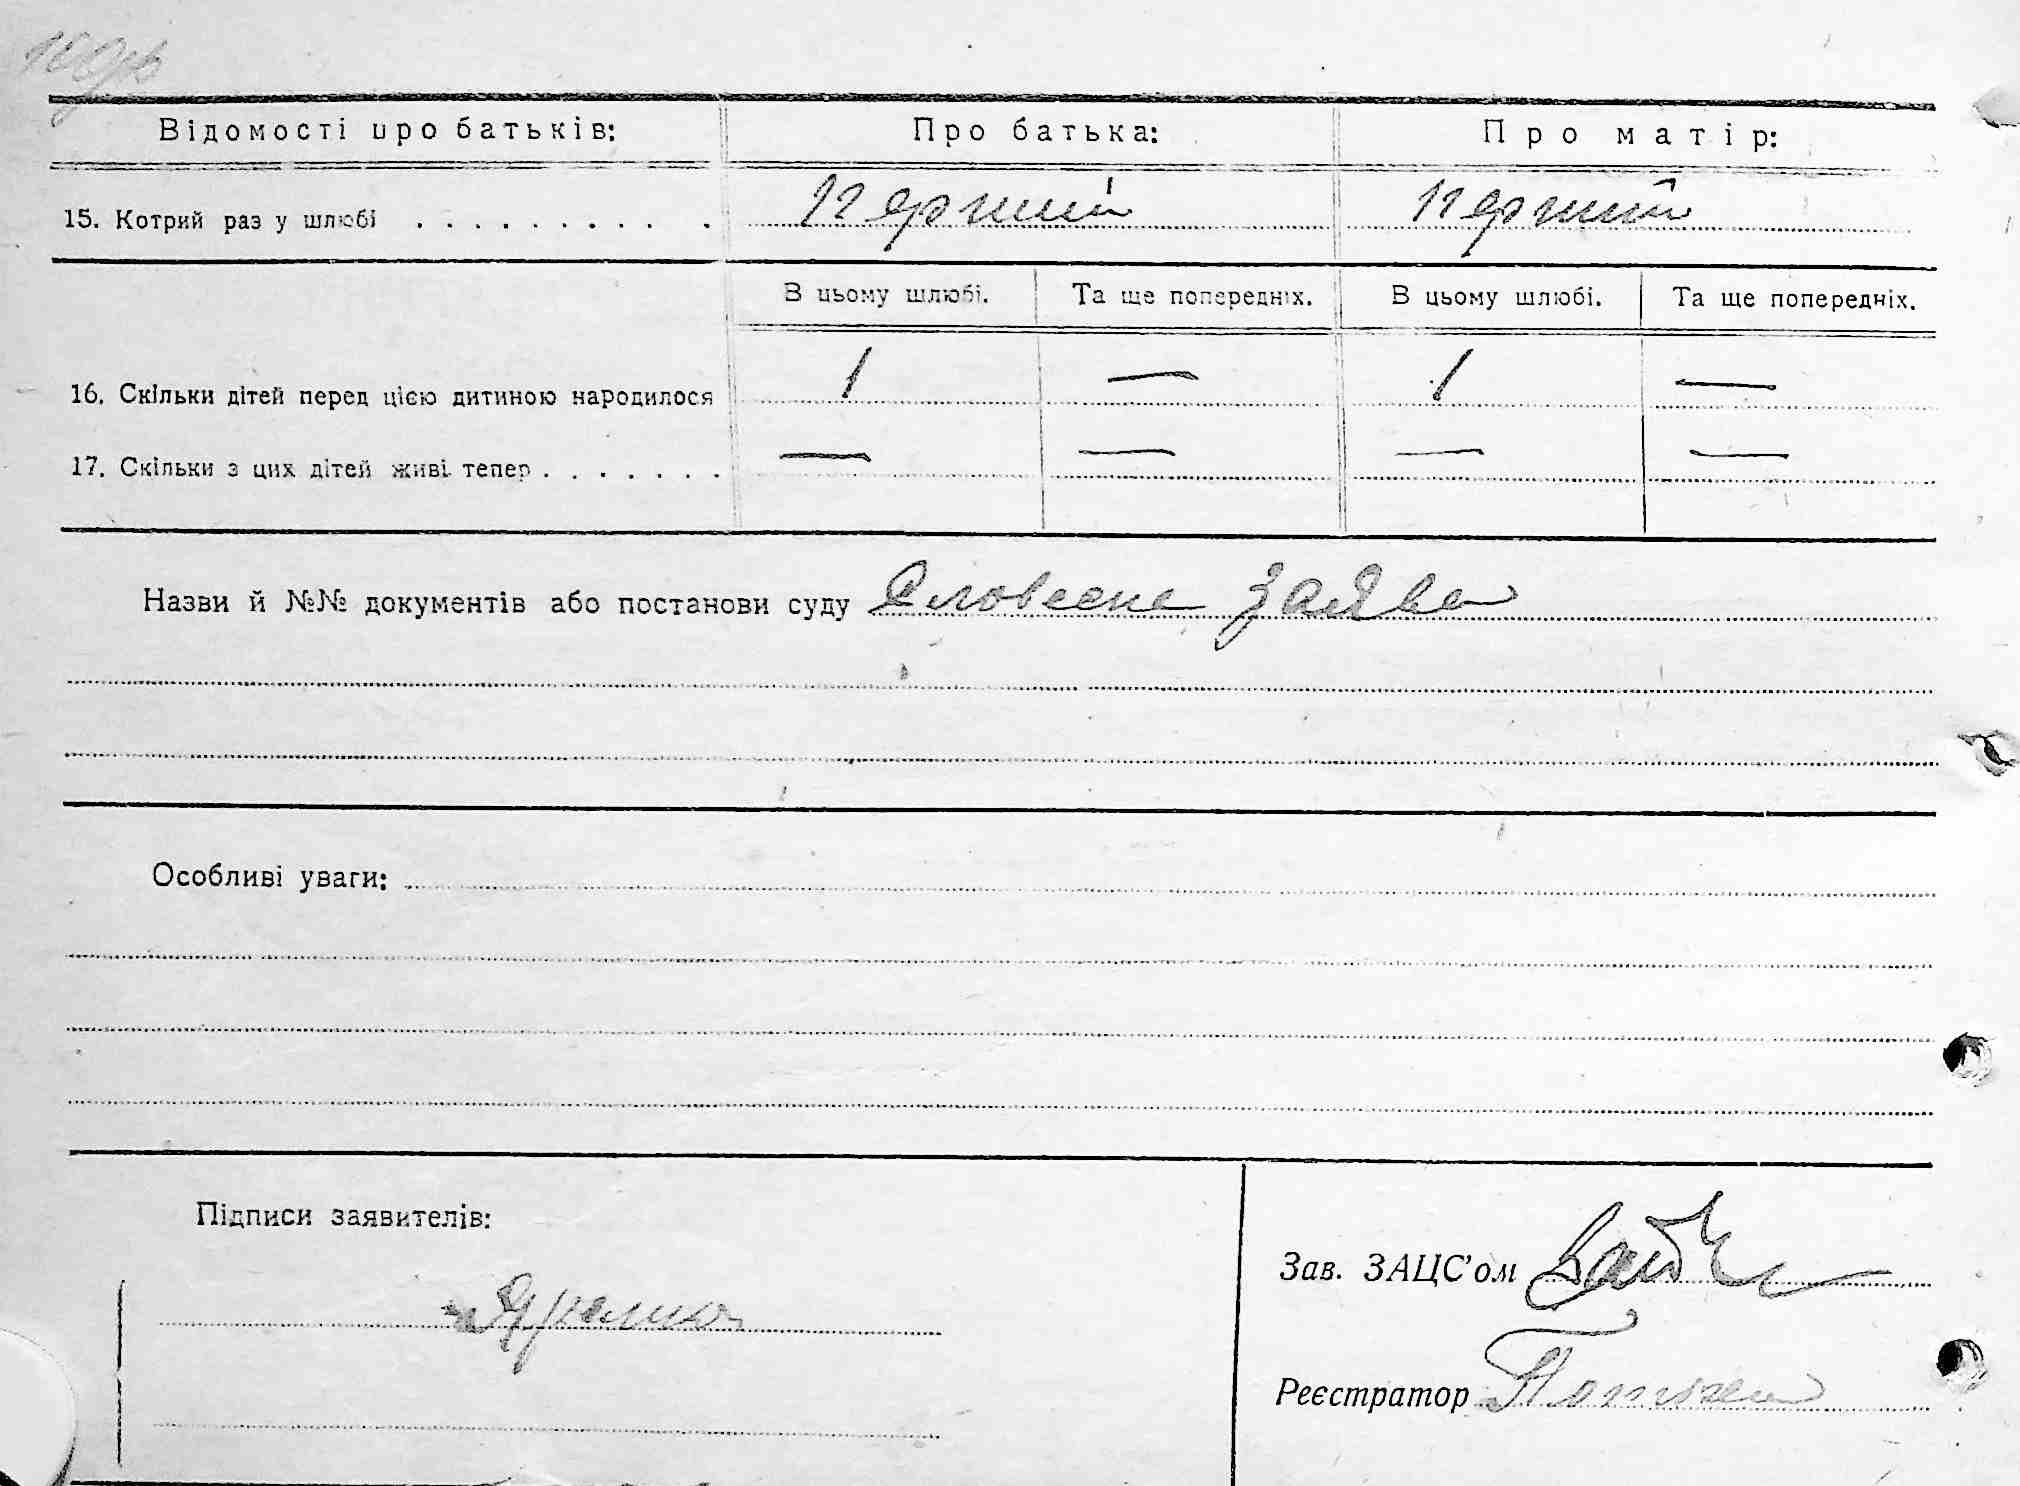 Відомості про батьків: Про батька: Про матір:
15. Котрий раз у шлюбі . . . . . . . . . . . первший первший
В цьому шлюбі. Та ще попередніх. В цьому шлюбі. Та ще попередніх.
16. Скільки дітей перед цією дитиною народилося 1 — 1 —
17. Скільки з цих дітей живі тепер . . . . . . . — — — —
Назви й №№ документів або постанови суду Словесна заява
Особливі уваги:
Підписи заявителів:
Зав. ЗАЦС’ом
Реєстратор